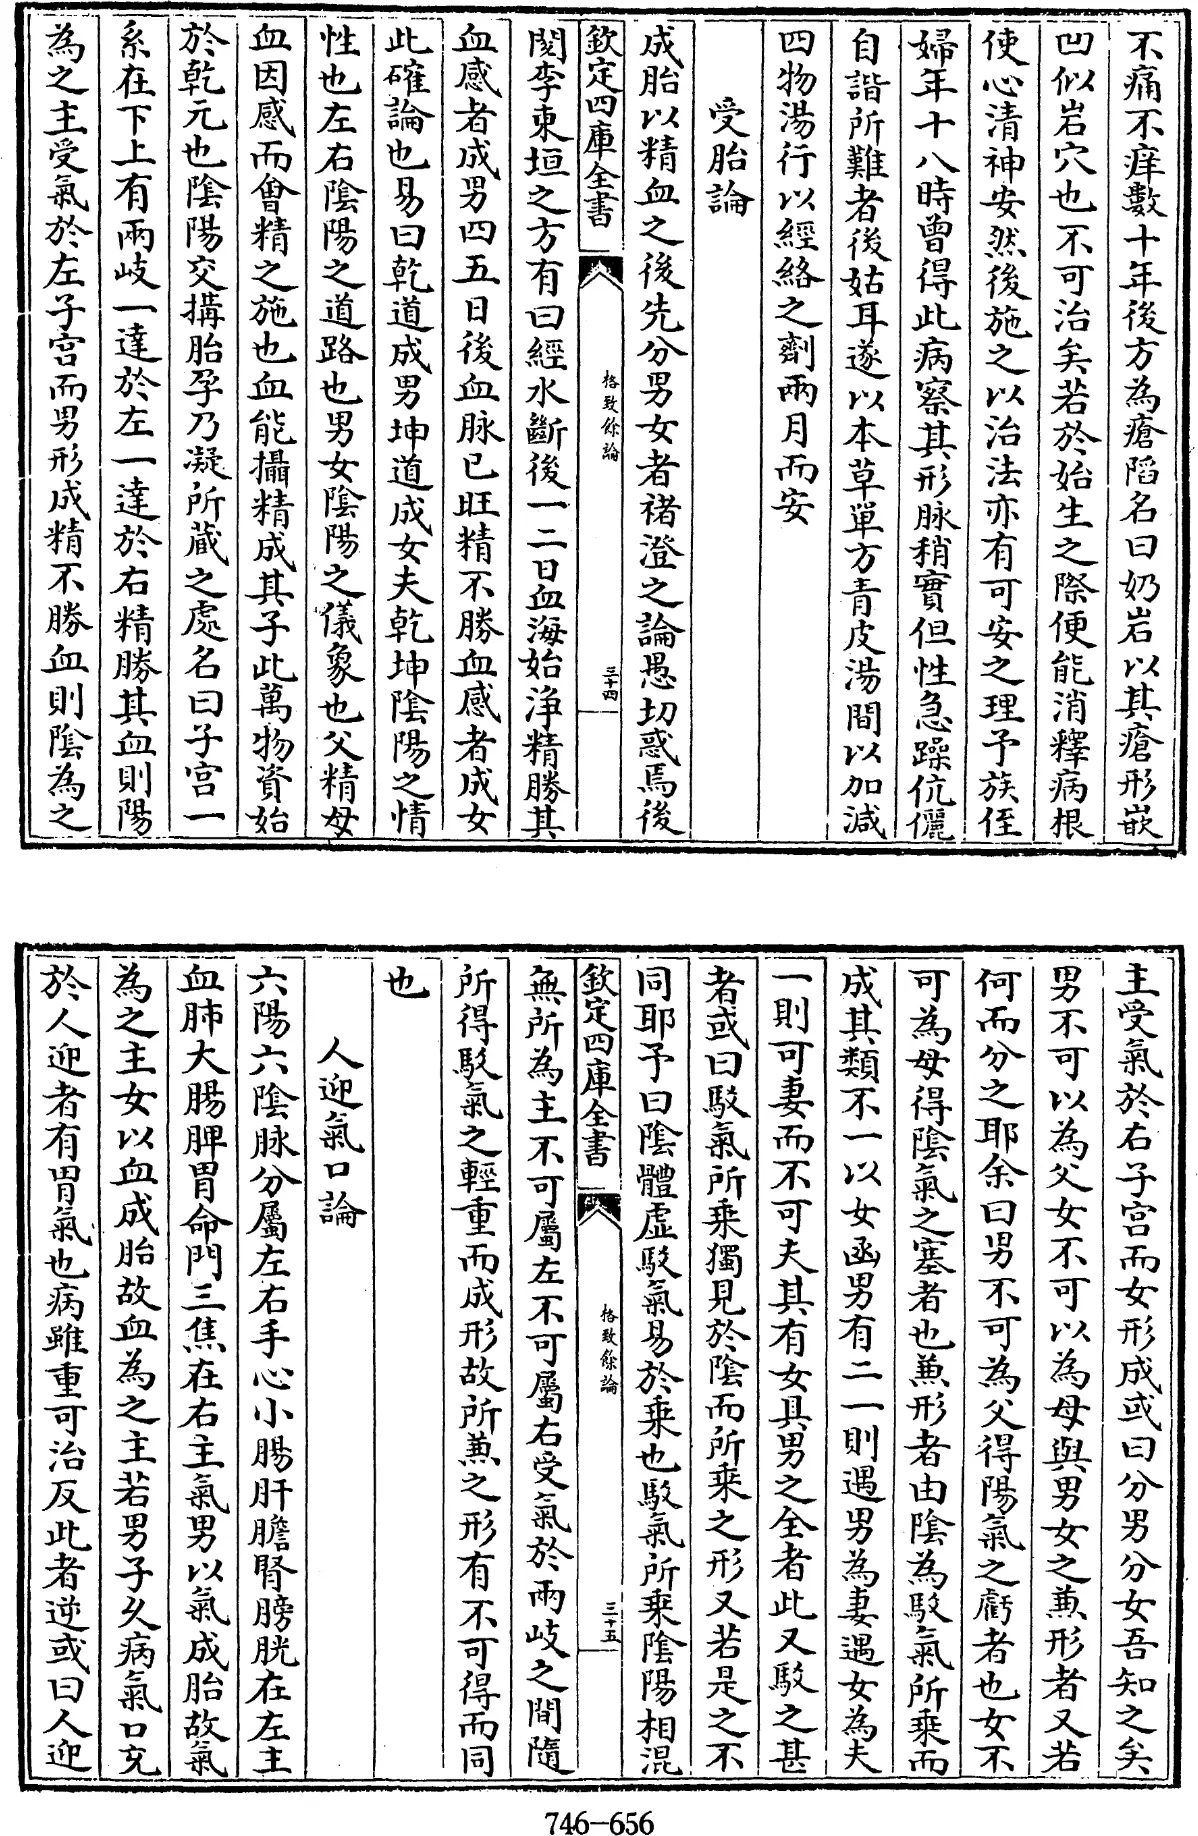 不痛不痒數十年後方為瘡陷名曰奶岩以其瘡形嵌
凹似岩穴也不可治矣若於始生之際便能消釋病根
使心清神安然後施之以治法亦有可安之理予族侄
婦年十八時曽得此病察其形脉稍實但性急躁伉儷
自諧所難者後姑耳遂以本草單方青皮湯間以加減
四物湯行以經絡之劑兩月而安
受胎論
成胎以精血之後先分男女者褚澄之論愚切惑焉後
欽定四庫全書
格致餘論
三十四
閱李東垣之方有曰經水斷後一二日血海始净精勝其
血感者成男四五日後血脉已旺精不勝血感者成女
此確論也易曰乾道成男坤道成女夫乾坤陰陽之情
性也左右陰陽之道路也男女陰陽之儀象也父精母
血因感而㑹精之施也血能攝精成其子此萬物資始
於乾元也陰陽交搆胎孕乃凝所蔵之處名曰子宫一
系在下上有兩岐一達於左一達於右精勝其血則陽
為之主受氣於左子宫而男形成精不勝血則陰為之
主受氣於右子宫而女形成或曰分男分女吾知之矣
男不可以為父女不可以為母與男女之兼形者又若
何而分之耶余曰男不可為父得陽氣之虧者也女不
可為母得陰氣之塞者也兼形者由陰為駁氣所乗而
成其類不一以女函男有二一則遇男為妻遇女為夫
一則可妻而不可夫其有女具男之全者此又駁之甚
者或曰駁氣所乗獨見於陰而所乗之形又若是之不
同耶予曰陰體虚駁氣易於乗也駁氣所乗陰陽相混
欽定四庫全書
格致餘論
三十五
無所為主不可屬左不可屬右受氣於兩岐之間隨
所得駁氣之輕重而成形故所兼之形有不可得而同
也
人迎氣口論
六陽六陰脉分屬左右手心小腸肝膽腎膀胱在左主
血肺大腸脾胃命門三焦在右主氣男以氣成胎故氣
為之主女以血成胎故血為之主若男子久病氣口充
於人迎者有胃氣也病雖重可治反此者逆或曰人迎
746-656